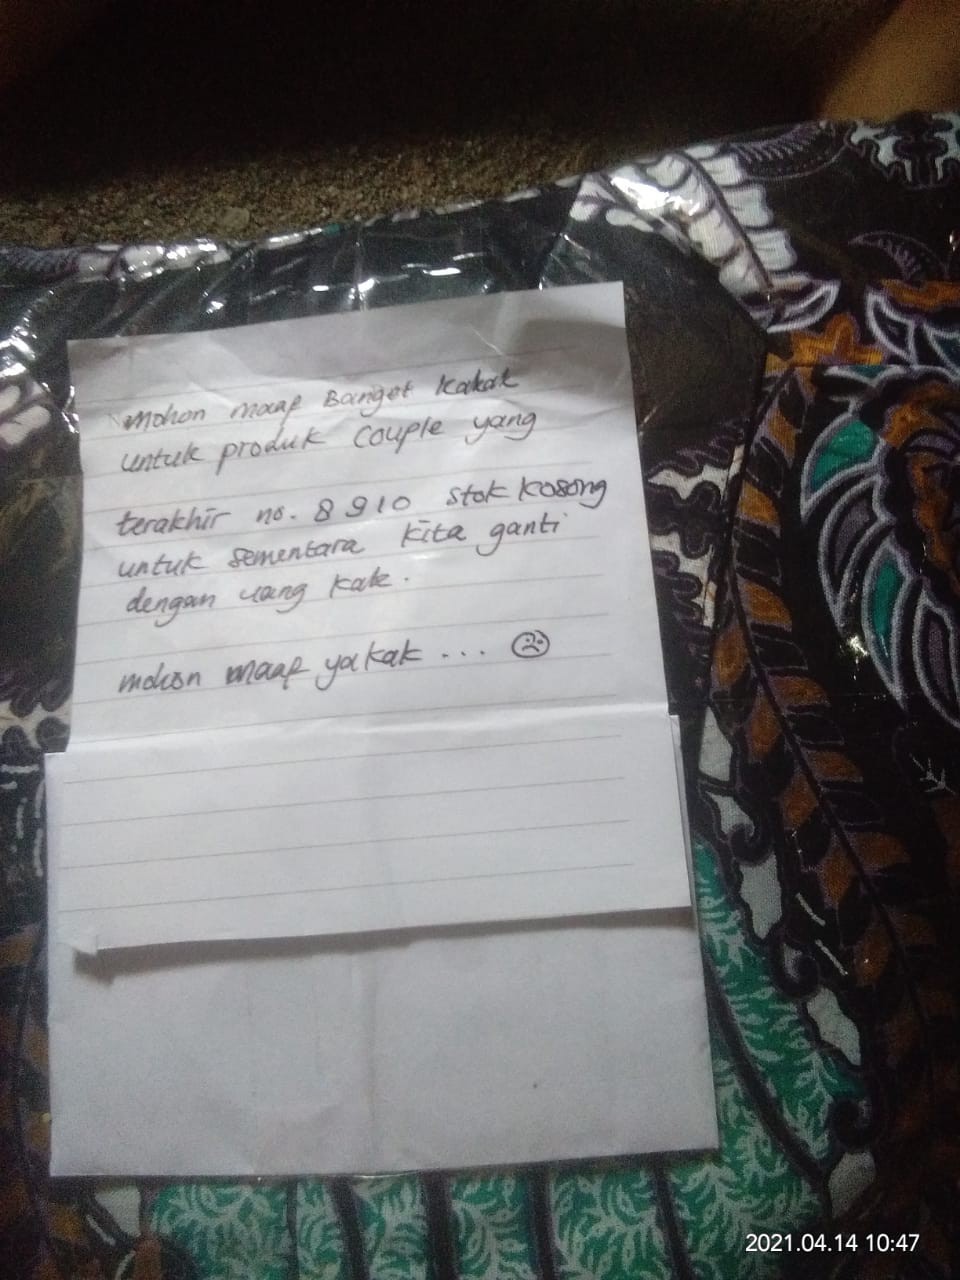 mohon maap Banget Kakak
untuk produk Couple yang
terakhir no. 8 9 10 stok kosong
untuk sementara kita ganti
dengan uang kak.
mohon maap ya kak ... ☹
2021.04.14 10:47